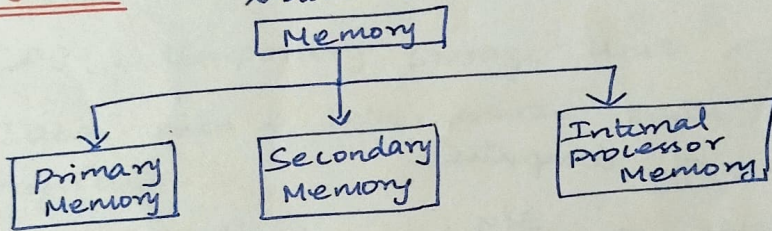 Memory
Primary
Memory
Secondary
Memory
Internal
processor
Memory